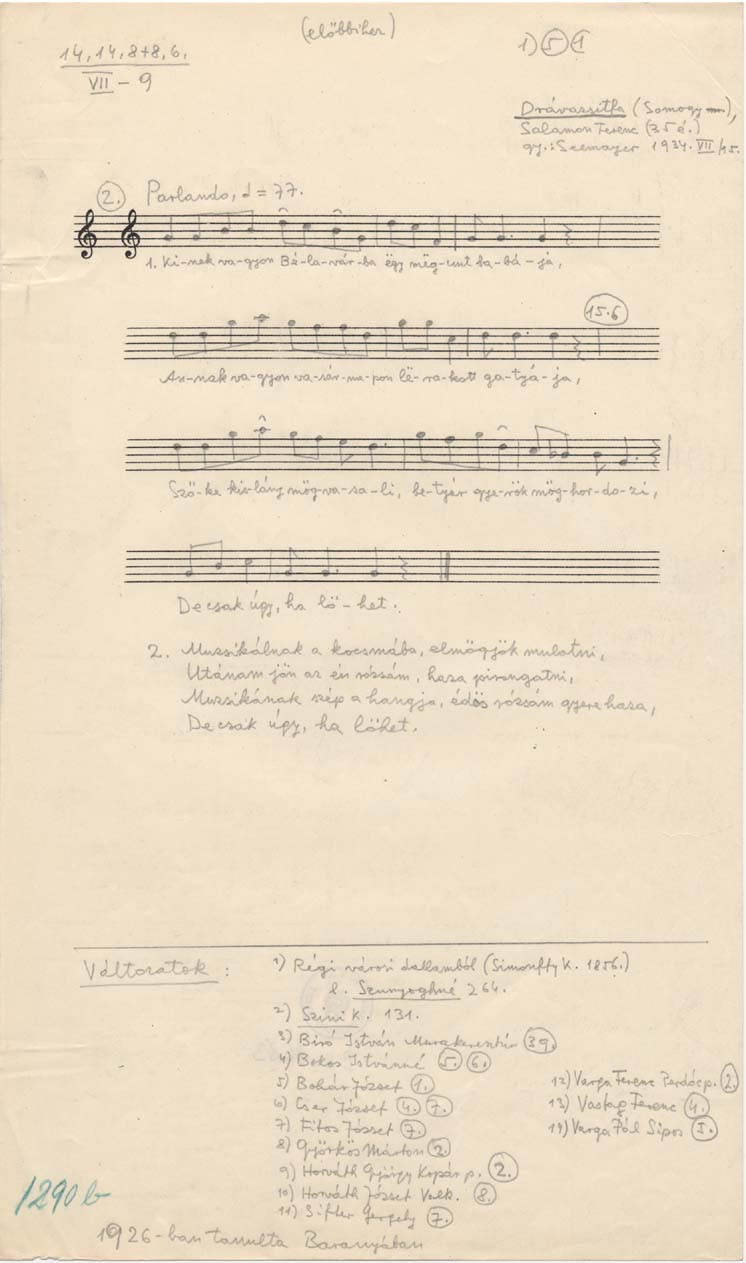 (előbbihez)
14, 14, 8+8, 6,
VII – 9
1) 5 1
Drávaszitfa (Somogy m.),
Salamon Ferenc (35 é.)
gy.: Seemayer 1934. VII/15.
2. Parlando, ♩ = 77.
1. Ki-nek va-gyon Bé-la-vár-ba ëgy mëg-unt ba-bá-ja,
15.6
An-nak va-gyon va-sár-na-pon lë-ra-kott ga-tyá-ja,
Sző-ke kis-lány mög-va-sa-li, be-tyár gye-rök mög-hor-do-zi,
De csak úgy, ha lö-het.
2. Muzsikálnak a kocsmába, elmögyök mulatni,
Utánam jön az én rózsám, haza pirongatni,
Muzsikának szép a hangja, édös rózsám gyere haza,
De csak úgy, ha löhet.
Változatok :
1) Régi városi dallamból (Simonffy K. 1856.)
l. Szunyoghné 264.
2) Szini K. 131.
3) Biró István Murakeresztúr 39.
4) Bokos Istvánné 5. 6.
5) Bohár József 1.
6) Cser József 4. 7.
7) Fitos József 7.
8) Györkös Márton 2.
9) Horváth György Kopár p. 2.
10) Horváth József Valk. 8.
11) Sifter Gergely 7.
12) Varga Ferenc Perdóc p. 2.
13) Vastag Ferenc 4.
14) Varga Pál Sipos 1.
1290 b
1926-ban tanulta Baranyában